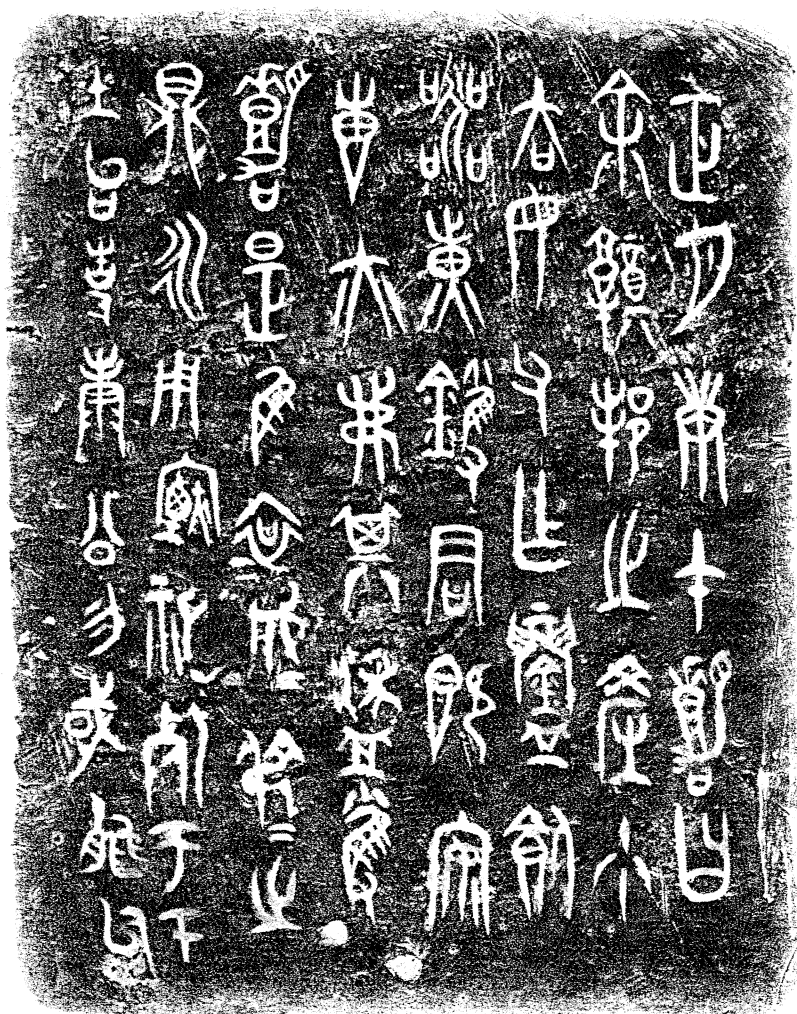 正月庚午嘉曰
余鄭邦之產少
去母父乍鑄飤
器黃鑊君既安
叀亦弗其蒦
嘉是隹哀成叔之
鼎永用禋祀死于下
土台事康公勿或能怠